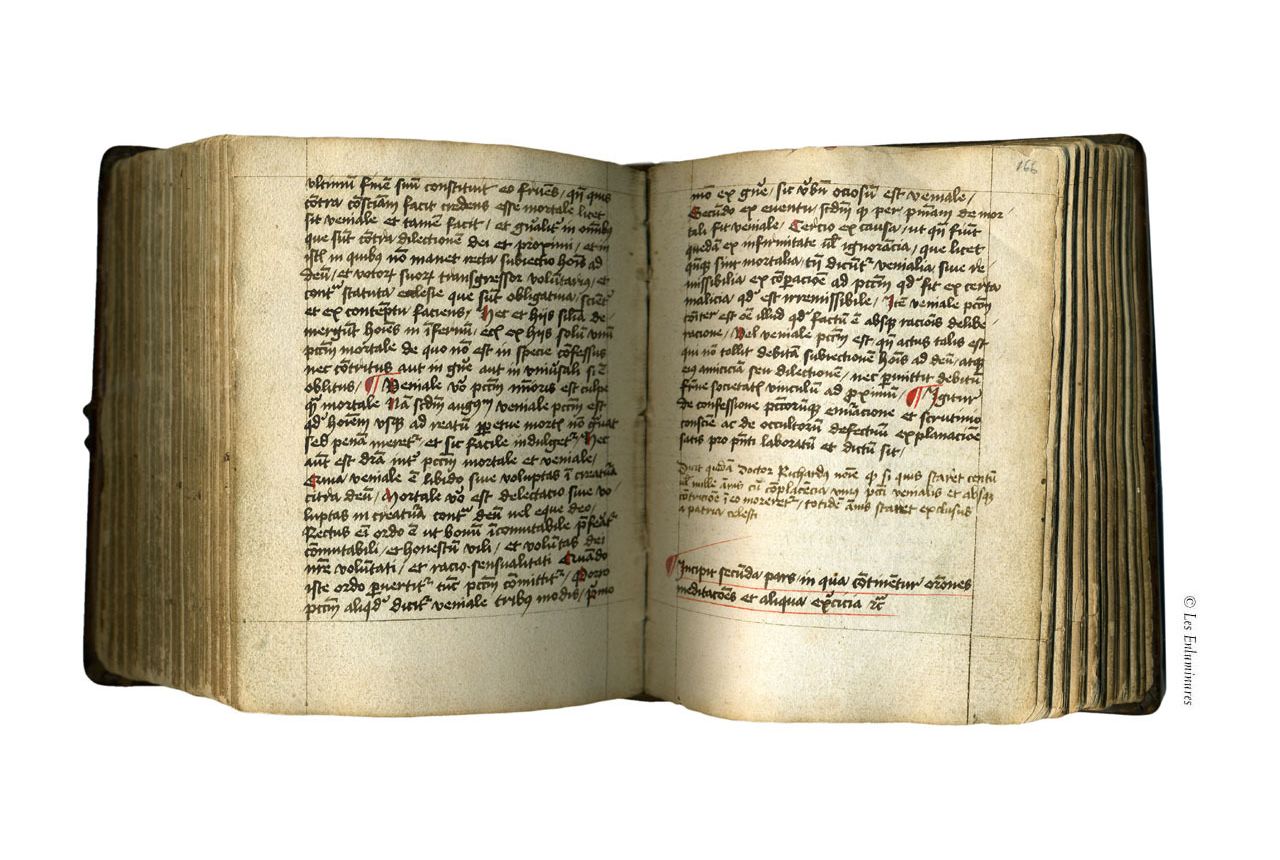 ultimū finē suū constituit eo fruēs, qn̄ quis
cōtra cōsciam facit credens esse mortale licet
sit veniale et tamē facit, et gnalit in omībꝫ
que sūt cōtra dilectionē dei et proximi, et in
istis in quibus nō manet recta subiectio hoīs ad
deū, et votorꝫ suorꝫ transgressor volūtariꝯ, et
contᵃ statuta ecclesie que sūt obligatiua, sciētʳ
et ex contēptu faciens, Hec et hiis silia de-
mergūt hoīes in īfernū, etc̄ ex hiis solū vnū
pctm̄ mortale de quo nō est in specie cōfessus
nec cōtritus aut in gn̄e aut in vniūsali si ē
oblitus, ¶ Veniale vo pctm̄ mīoris est culpe
qᵃ mortale Nā scdm̄ augꝯm veniale pctm̄ est
qd hoīem vsqꝫ ad reatū ꝑpetue mortꝭ nō gūat
sed penā meretʳ, et sic facile indulgetʳ, Hec
aūt est dr̄ia intʳ pctm̄ mortale et veniale,
Quia veniale ē libido siue voluptas ī creatūa
citra deū, Mortale vo est delectacio siue vo-
luptas in creatūa contᵃ deū vel eque deo,
Rectus eī ordo ē ut bonū īcōmutabile p̄feratʳ
cōmutabili, et honestū vili, et volūtas dei
nr̄e volūtati, et racio sensualitati Quādo
iste ordo ꝑuertitʳ tūc pctm̄ cōmittitʳ, Porro
pctm̄ aliqdᵒ dicitʳ veniale tribꝯ modis, pͥmo
166
mō ex gn̄e, sic v̄bū ociosum est veniale,
Secūdo ex euentu, scdm̄ qꝫ per pn̄iam de mor-
tali fit veniale, Tercio ex causa, ut qn̄ fiūt
quedā ex infirmitate ul ignorācia, que licet
qn̄qꝫ sint mortalia, tn̄ dicūtʳ venialia, siue re-
missibilia ex cōꝑacione ad pctm̄ qd fit ex certa
malicia qd est irremissibile, Itē veniale pctm̄
cōīter est oē illud qd factū ē absqꝫ racionis delibe-
racione, Vel veniale pctm̄ est, qn̄ actus talis est
qui nō tollit debitā subiectionē hoīs ad deū, atqꝫ
eiꝯ amiciciā seu dilectionē, nec ꝑmittit debitū
frn̄e societatis vinculū ad proximū, ¶ Igitur
de confessione pctōrūqꝫ emūacione et scrutinio
consciē ac de occultorū defectuū explanacōe
satis pro pn̄ti laboratū et dictū sit,
Dicit quidā doctor Richardꝯ noīe qꝫ si quis staret centū
ul mille ānis cū cōplacēcia vniꝯ pcti venialis et absqꝫ
cōtricōe ī eo moreretʳ, totidē ānis staret exclusus
a patria celesti
¶ Incipit secūda pars in qua cōtinētur orōnes
meditacōes et aliqua exʳcicia ꝛc̄
© Les Enluminures